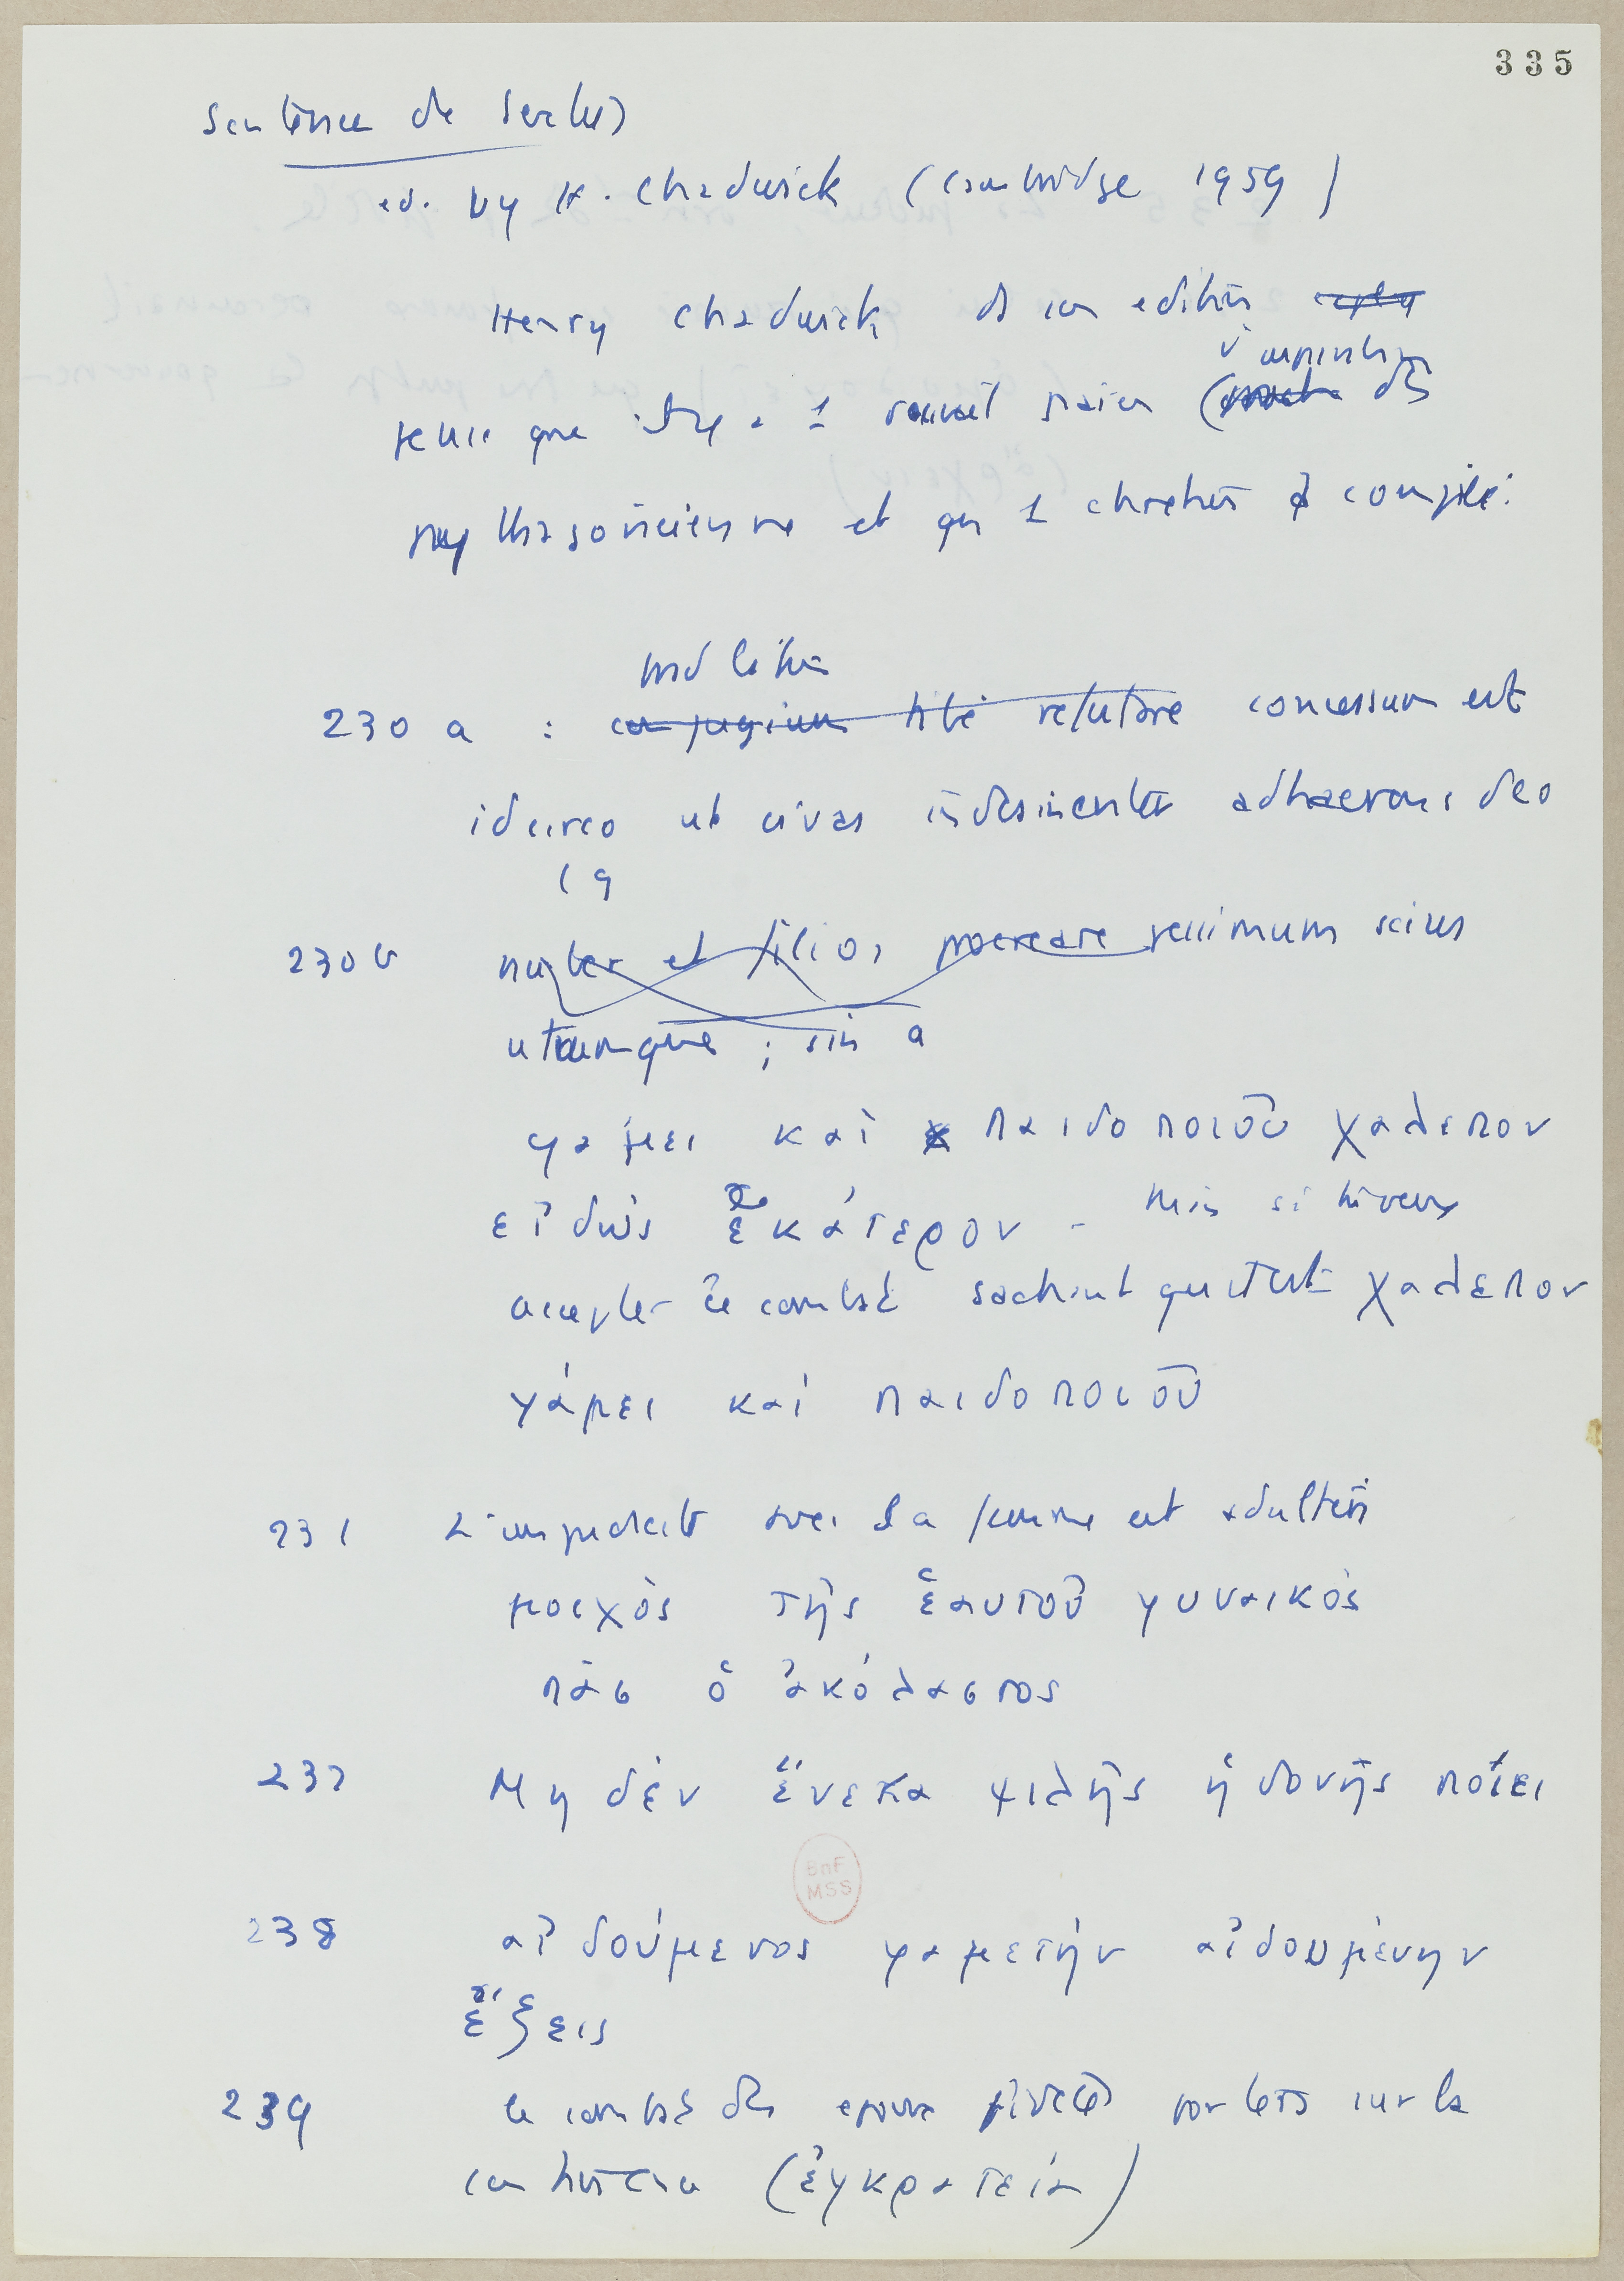 335
Sentence de Sextus
ed. by H. Chadwick (Cambridge 1959)
Henry Chadwick ds son edition
d'inspiration
pense que Sty a 1 recueil païen ( des
pythagoricienne et qu 1 chretien a compilé.
230 a : conjugium tibi refutare concessum est
idcirco ut vivas indesinenter adhaerens deo
(9
230 b nuber et filios procreare pessimum scius
utrumque ; sin a
γαμει καὶ παιδοποιοῦ χαλεπον
εἰδὼς ἑκάτερον - Mais si
accepter le combat sachant que c'est χαλεπον
γάμει καὶ παιδοποιοῦ
231 L'impudent avec sa femme est adultère
μοιχὸς τῆς ἑαυτοῦ γυναικὸς
πᾶσ ὁ ἀκόλαστος
232 Μηδὲν ἕνεκα ψιλῆς ἡδονῆς ποίει
238 αἰδούμενος γαμετὴν αἰδουμένην
ἕξεις
239 le combat des epoux fideles portera sur la
continence (ἐγκρατεία)
BnF
MSS